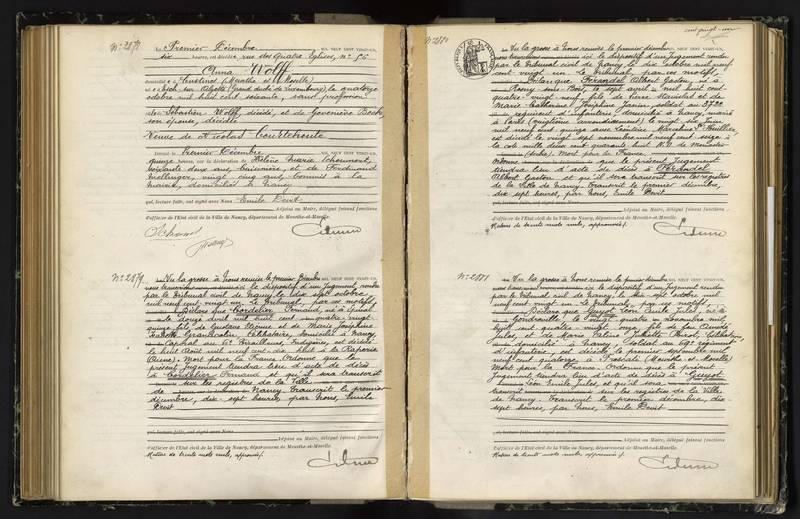 N° 2878
Le Premier Décembre MIL NEUF CENT VINGT-UN,
dix heures, est décédée rue des Quatre Églises, n° 56
Anna Wolff
domiciliée à (Meurthe et Moselle)
Esch sur Alzette (Grand duché de Luxembourg) le quatorze
octobre mil huit cent soixante, sans profession
de Sébastien Wolff, décédé, et de Geneviève Bock,
son épouse, décédée
Veuve de Nicolas
Dressé le Premier Décembre
quinze heures, sur la déclaration de Hélène Marie
soixante deux ans, et de Ferdinand
vingt ans, commis à la
mairie, domiciliés à Nancy
qui, lecture faite, ont signé avec Nous Emile Devit
Adjoint au Maire, délégué faisant fonctions
d'officier de l'État civil de la Ville de Nancy, département de Meurthe-et-Moselle.
N° 2879
Vu la grosse à Nous remise le premier Décembre MIL NEUF CENT VINGT-UN,
nous transcrivons ici le dispositif d'un Jugement rendu
par le tribunal civil de Nancy, le dix sept octobre
mil neuf cent vingt un. Le Tribunal, par ces motifs,
Déclare que Cordelier Fernand, né à Epinal
le douze mil huit cent quatre-vingt
quinze, fils de et de Marie Joséphine
célibataire, domicilié à Nancy,
Caporal au 6e Tirailleurs Indigènes, est décédé
le huit Août mil neuf cent dix huit à la Raperie
Mort pour la France. Ordonne que le
présent jugement tiendra lieu d'acte de décès
à Cordelier Fernand et qu'il sera transcrit
sur les registres de la Ville
de Nancy. Transcrit le premier
décembre, dix sept heures, par Nous, Emile
Devit
qui, lecture faite, ont signé avec Nous
Adjoint au Maire, délégué faisant fonctions
d'officier de l'État civil de la Ville de Nancy, département de Meurthe-et-Moselle.
Rature de trente mots nuls, approuvée.
cent vingt-un
N° 2880
Vu la grosse à Nous remise le premier décembre MIL NEUF CENT VINGT-UN,
nous transcrivons ici le dispositif d'un jugement rendu
par le tribunal civil de Nancy, le dix octobre mil neuf
cent vingt un. Le Tribunal, par ces motifs,
Déclare que Férandel Albert Gaston, né à
Rosny sous Bois, le sept avril mil huit cent
quatre-vingt neuf, fils de et de
Marie Catherine Joséphine Janin, soldat au 372e
régiment d'infanterie, domicilié à Nancy, marié
à Paris arrondissement) le vingt six Juin
mil neuf cent quinze avec
est décédé le vingt sept novembre mil neuf cent seize à
la cote mille deux cent quarante huit N.O. de Monastir
(Serbie). Mort pour la France.
Ordonne que le présent Jugement
tiendra lieu d'acte de décès à Férandel
Albert Gaston et qu'il sera transcrit sur les registres
de la Ville de Nancy. Transcrit le premier décembre,
dix sept heures, par Nous, Emile Devit
Adjoint au Maire, délégué faisant fonctions
d'officier de l'État civil de la Ville de Nancy, département de Meurthe-et-Moselle.
Rature de trente mots nuls, approuvée.
N° 2881
Vu la grosse à Nous remise le premier décembre MIL NEUF CENT VINGT-UN,
nous transcrivons ici le dispositif d'un Jugement rendu
par le tribunal civil de Nancy, le dix sept octobre mil
neuf cent vingt un. Le Tribunal, par ces motifs,
Déclare que Guyot Léon Emile Jules, né à
Gondreville le vingt quatre Novembre mil
huit cent quatre vingt onze, fils de Claude
Jules, et de Marie célibataire,
domicilié à Nancy, soldat au 69e régiment
d'infanterie, est décédé le premier septembre mil
neuf cent quatorze à (Meurthe et Moselle)
Mort pour la France. Ordonne que le présent
jugement tiendra lieu d'acte de décès à Guyot
Léon Emile Jules, et qu'il sera
transcrit sur les registres de la Ville
de Nancy. Transcrit le premier décembre, dix
sept heures, par Nous, Emile Devit
qui, lecture faite, ont signé avec Nous
Adjoint au Maire, délégué faisant fonctions
d'officier de l'État civil de la Ville de Nancy, département de Meurthe-et-Moselle.
Rature de trente mots nuls, approuvée.